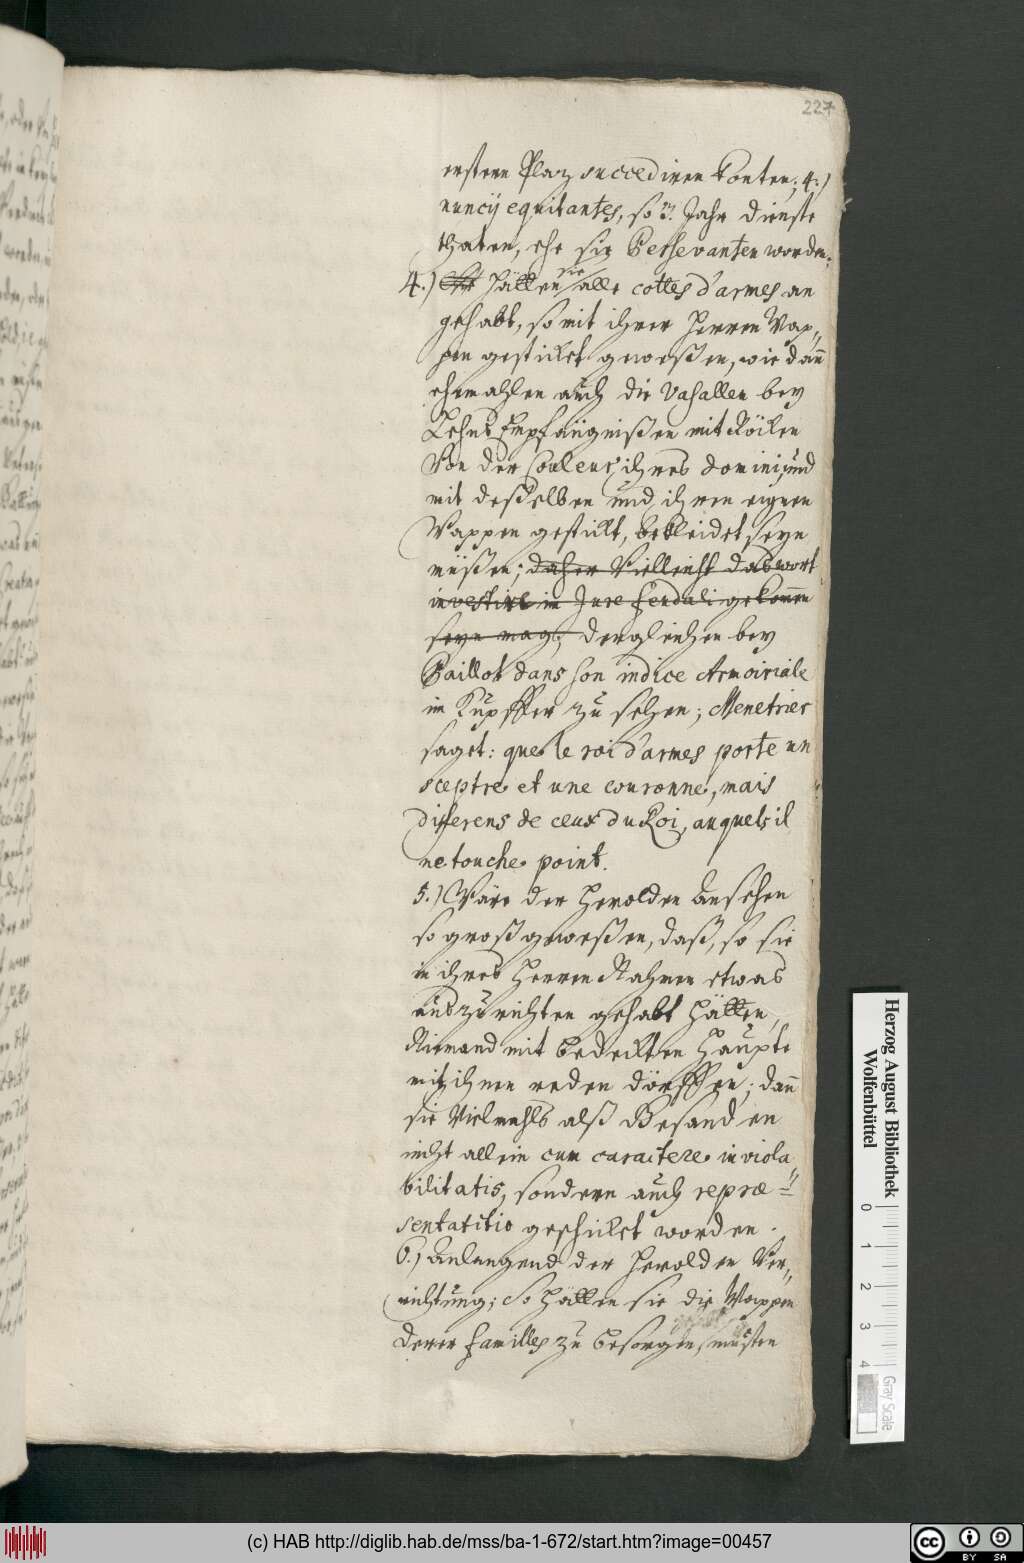 227
erstern Plaz succediren konten; 4.)
nuncij equitantes, so 3. Jahr dienste
thaten, ehe sie Persevanten worden;
4.) hätten sie alle cottes d'armes an
gehabt, so mit ihrer Herren Wap-
pen gestickt geweßen, wie dann
ehmahlen auch die Vasallen bey
Lehns Empfängnißen mit Röcken
Von der Couleur ihres domini, und
mit deßelben und ihren eignen
Wappen gestickt, bekleidet seyn
müßen; daher Villeicht das wort
investire in Jure feudali gekommen
seyn mag; dergleichen bey
Paillot dans son indice Armoiriale
in Kupffer zu sehen; Menetrier
saget: que le roi d'armes porte un
sceptre et une couronne, mais
differens de ceux du Roi, auquels il
ne touche point.
5.) Wäre der Herolden Ansehen
so groß geweßen, daß, so sie
in ihres Herren Nahmen etwas
auszurichten gehabt hätten,
Niemand mit bedeckten Haupte
mit ihnen reden dörffen; dann
sie Vielmahls alß Gesanden
nicht allein cum caractere inviola-
bilitatis, sondern auch repræ-
sentatitio geschickt worden.
6.) Anlangend der Herolden Ver-
richtung; So hätten sie die Wappen
derer familles zu besorgen, musten
Herzog August Bibliothek
Wolfenbüttel
0 1 2 3 4
Gray Scale
(c) HAB http://diglib.hab.de/mss/ba-1-672/start.htm?image=00457
cc BY SA